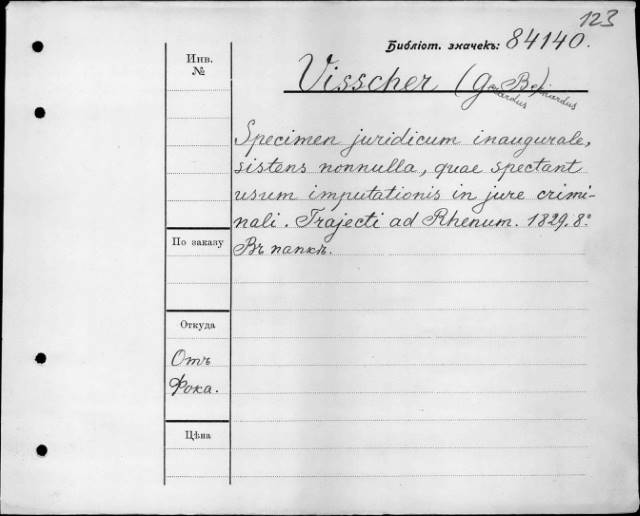 123
Библіот. значекъ: 84140.
Инв. №
Visscher (Gerardus Bernardus)
Specimen juridicum inaugurale,
sistens nonnulla, quae spectant
usum imputationis in jure crimi-
nali. Trajecti ad Rhenum. 1829. 8°
По заказу
Въ папкѣ.
Откуда
Отъ
Фока.
Цѣна